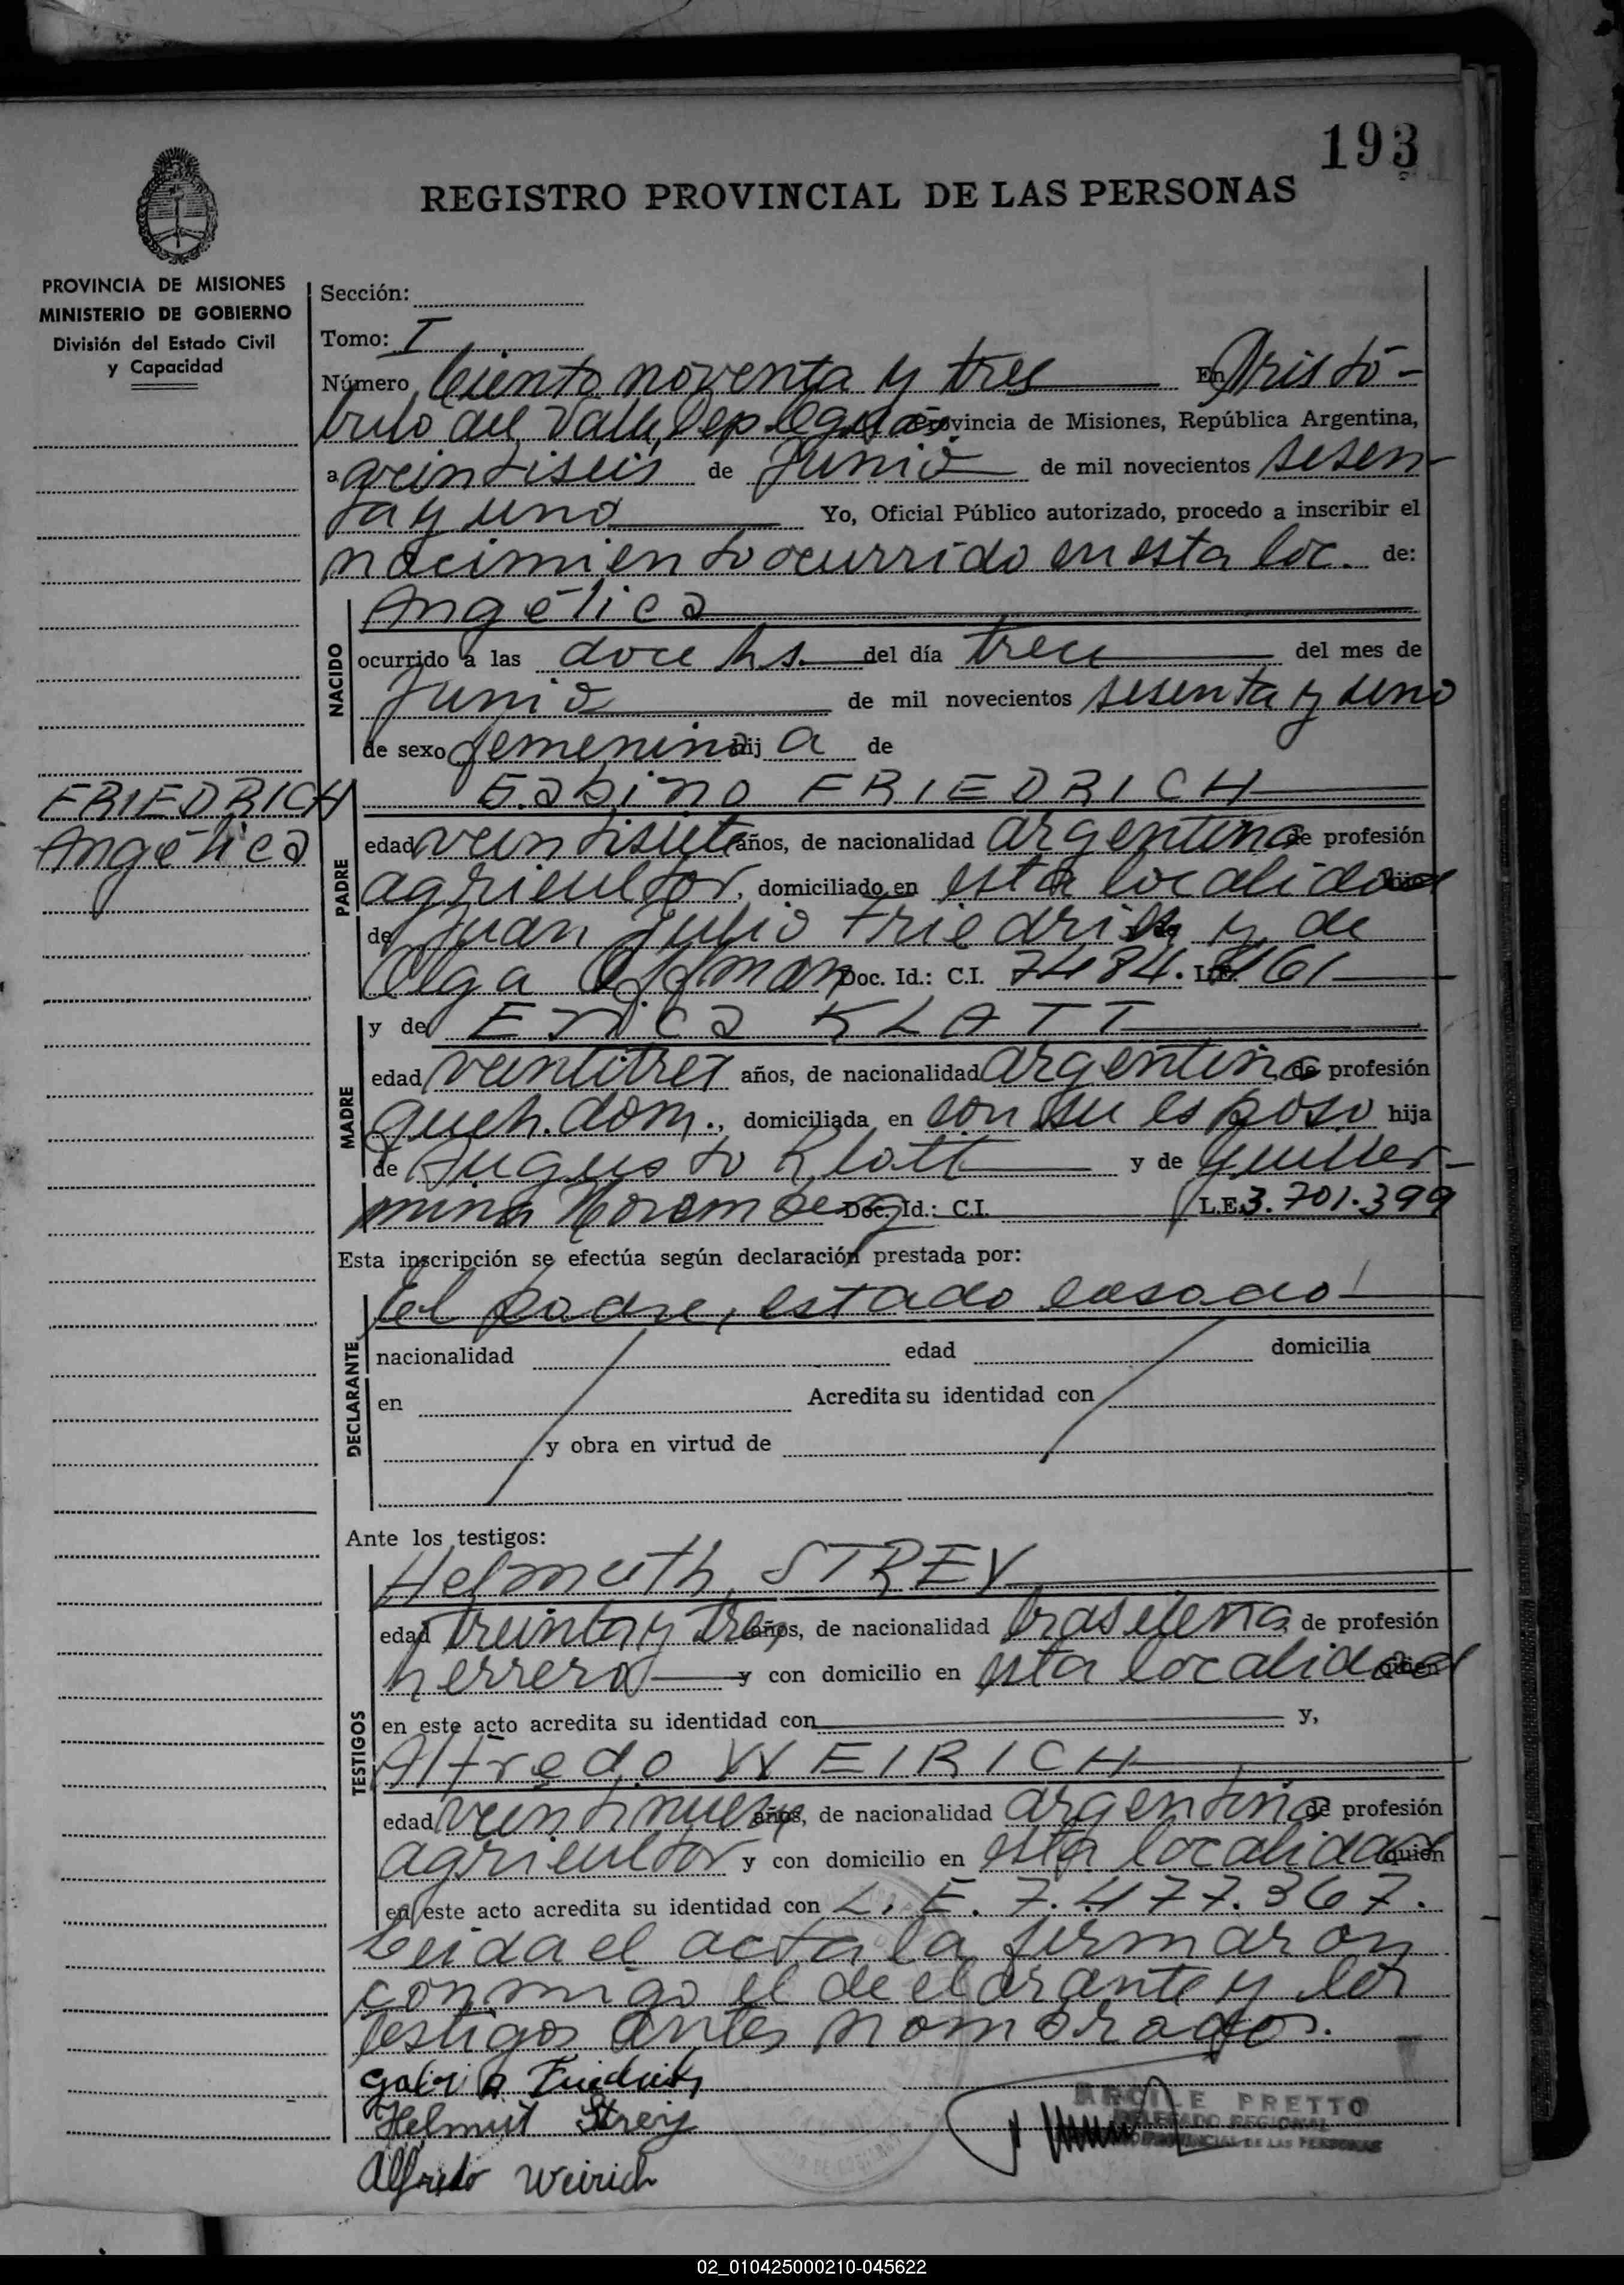 193
REGISTRO PROVINCIAL DE LAS PERSONAS
PROVINCIA DE MISIONES
MINISTERIO DE GOBIERNO
División del Estado Civil
y Capacidad
Sección:
Tomo: I
Número Ciento noventa y tres En Aristó-
bulo del Valle, Dep. Provincia de Misiones, República Argentina,
a veintiseis de Junio de mil novecientos sesen-
ta y uno Yo, Oficial Público autorizado, procedo a inscribir el
nacimiento ocurrido en esta loc. de:
NACIDO
Angélica
ocurrido a las doce hs. del día trece del mes de
Junio de mil novecientos sesenta y uno
de sexo femenino hij a de
FRIEDRICH
Angélica
PADRE
Gabino FRIEDRICH
edad veintisiete años, de nacionalidad argentina de profesión
agricultor, domiciliado en esta localidad hijo
de Juan Julio Friedrich y de
Olga Doc. Id.: C.I. 7484.161 L.E.
MADRE
y de Erica KLATT
edad veintitres años, de nacionalidad argentina de profesión
queh. dom., domiciliada en con su esposo hija
de Augusto Klatt y de Guiller-
mina Doc. Id.: C.I. L.E. 3.701.399
Esta inscripción se efectúa según declaración prestada por:
DECLARANTE
El padre, estado casado
nacionalidad edad domicilia
en Acredita su identidad con
y obra en virtud de
Ante los testigos:
TESTIGOS
Helmuth STREY
edad treinta y tres años, de nacionalidad brasileña de profesión
herrero y con domicilio en esta localidad quien
en este acto acredita su identidad con y,
Alfredo WEIRICH
edad veintinueve años, de nacionalidad argentina de profesión
agricultor y con domicilio en esta localidad quien
en este acto acredita su identidad con L. E. 7.477.367.
Leida el acta la firmaron
conmigo el declarante y los
testigos antes nombrados.
Friedrich
Helmut Strey
Alfredo Weirich
ARCILE PRETTO
DELEGADO REGIONAL
PROVINCIAL DE LAS PERSONAS
02_010425000210-045622